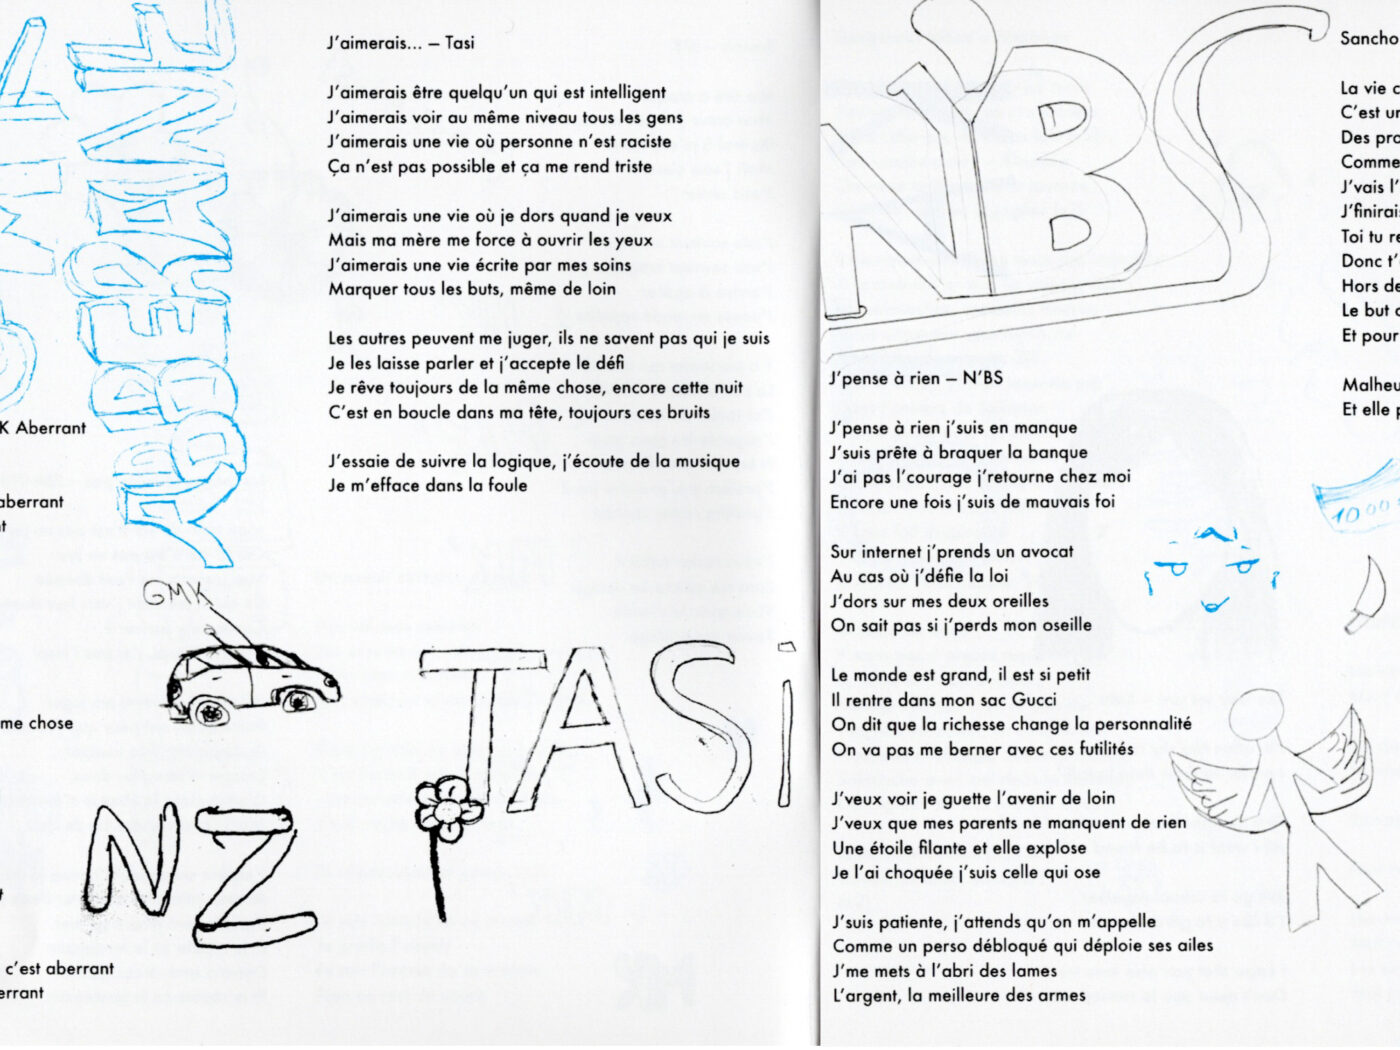 ABERRANT
K Aberrant
aberrant
GMK
me chose
NZ
c'est aberrant
errant
J'aimerais... – Tasi
J'aimerais être quelqu'un qui est intelligent
J'aimerais voir au même niveau tous les gens
J'aimerais une vie où personne n'est raciste
Ça n'est pas possible et ça me rend triste
J'aimerais une vie où je dors quand je veux
Mais ma mère me force à ouvrir les yeux
J'aimerais une vie écrite par mes soins
Marquer tous les buts, même de loin
Les autres peuvent me juger, ils ne savent pas qui je suis
Je les laisse parler et j'accepte le défi
Je rêve toujours de la même chose, encore cette nuit
C'est en boucle dans ma tête, toujours ces bruits
J'essaie de suivre la logique, j'écoute de la musique
Je m'efface dans la foule
TASi
N'BS
J'pense à rien – N'BS
J'pense à rien j'suis en manque
J'suis prête à braquer la banque
J'ai pas l'courage j'retourne chez moi
Encore une fois j'suis de mauvais foi
Sur internet j'prends un avocat
Au cas où j'défie la loi
J'dors sur mes deux oreilles
On sait pas si j'perds mon oseille
Le monde est grand, il est si petit
Il rentre dans mon sac Gucci
On dit que la richesse change la personnalité
On va pas me berner avec ces futilités
J'veux voir je guette l'avenir de loin
J'veux que mes parents ne manquent de rien
Une étoile filante et elle explose
Je l'ai choquée j'suis celle qui ose
J'suis patiente, j'attends qu'on m'appelle
Comme un perso débloqué qui déploie ses ailes
J'me mets à l'abri des lames
L'argent, la meilleure des armes
Sancho
La vie c
C'est un
Des pro
Comme
J'vais l'
J'finirais
Toi tu re
Donc t'
Hors de
Le but
Et pour
Malheu
Et elle p
1000